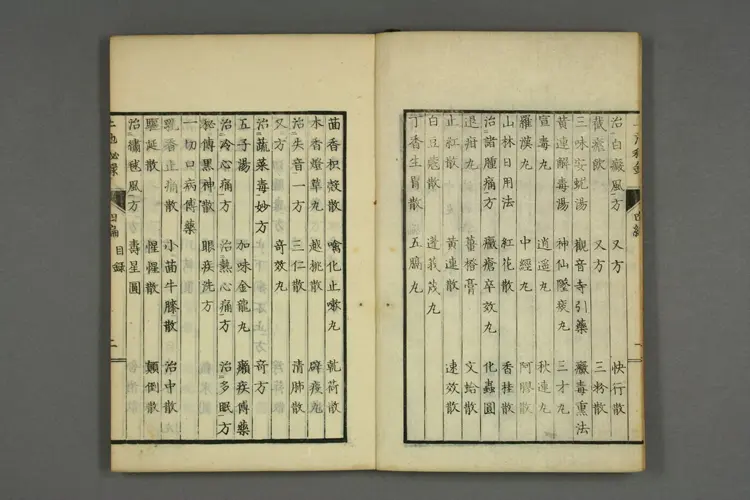 治白癜風方 又方 快行散
截瘧飲 又方 三粉散
三味安蚘湯 觀音寺引藥 癥毒熏法
黃連解毒湯 神仙墜痰丸 三才丸
宣毒丸 逍遥丸 秋連丸
羅漢丸 中經丸 阿膠散
山林日用法 紅花散 香桂散
治諸腫痛方 癥瘡卒效丸 化蟲圓
退疳丸 蕃椒膏 文蛤散
止紅散 黃連散 速效散
白豆蔻散 蓬莪茂丸
丁香生胃散 五膈丸
茴香枳殼散 噙化止嗽丸 乾荷散
木香燈草丸 越桃散 辟瘟丸
治失音一方 三仁散 清肺散
又方 奇效丸
治蔬菜毒妙方
五子湯 加味金龍丸 癩疾傅藥 奇方
治冷心痛方 治熱心痛方 治多眠方
秘傳黑神散 眼疾洗方
一切口病傅藥
乳香止痛散 小茴牛膝散 治中散
驅涎散 惺惺散 顛倒散
治繡毬風方 壽星圓
四編 目錄 二